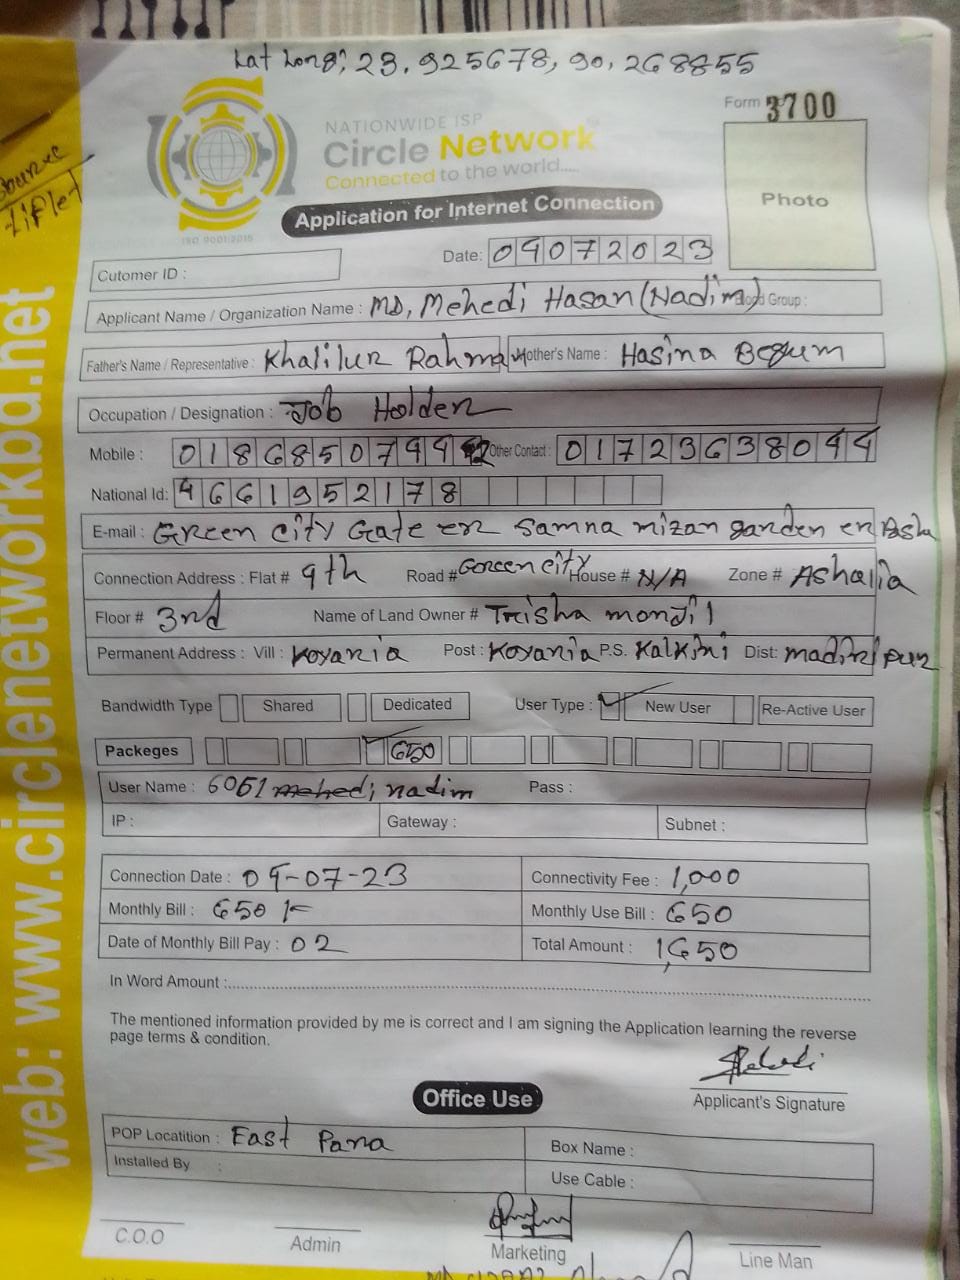 Lat Long; 23.925678, 90.268855
Form 3700
NATIONWIDE ISP
Circle Network
Connected to the world.....
ISO 9001:2015
Source
Liflet
Photo
Application for Internet Connection
Date: 09072023
Cutomer ID :
Applicant Name / Organization Name : MD, Mehedi Hasan (Nadim) Blood Group :
Father's Name / Representative : Khalilur Rahman Mother's Name : Hasina Begum
Occupation / Designation : Job Holder
Mobile : 0186850799 Other Contact : 01723638099
National Id: 4661952178
E-mail : Green city Gate er samna mizan garden er
Connection Address : Flat # 9th Road # Goreen city House # N/A Zone # Ashalia
Floor # 3rd Name of Land Owner # Trisha monjil
Permanent Address : Vill : Koyaria Post : Koyaria P.S. Kalkini Dist: madiripur
Bandwidth Type Shared Dedicated User Type : New User Re-Active User
Packeges 650
User Name : 6051 mehedi nadim Pass :
IP : Gateway : Subnet :
Connection Date : 09-07-23 Connectivity Fee : 1,000
Monthly Bill : 650 /= Monthly Use Bill : 650
Date of Monthly Bill Pay : 02 Total Amount : 1,650
In Word Amount :
The mentioned information provided by me is correct and I am signing the Application learning the reverse
page terms & condition.
Applicant's Signature
Office Use
POP Locatition : East Para Box Name :
Installed By : Use Cable :
C.O.O Admin Marketing Line Man
web: www.circlenetworkbd.net